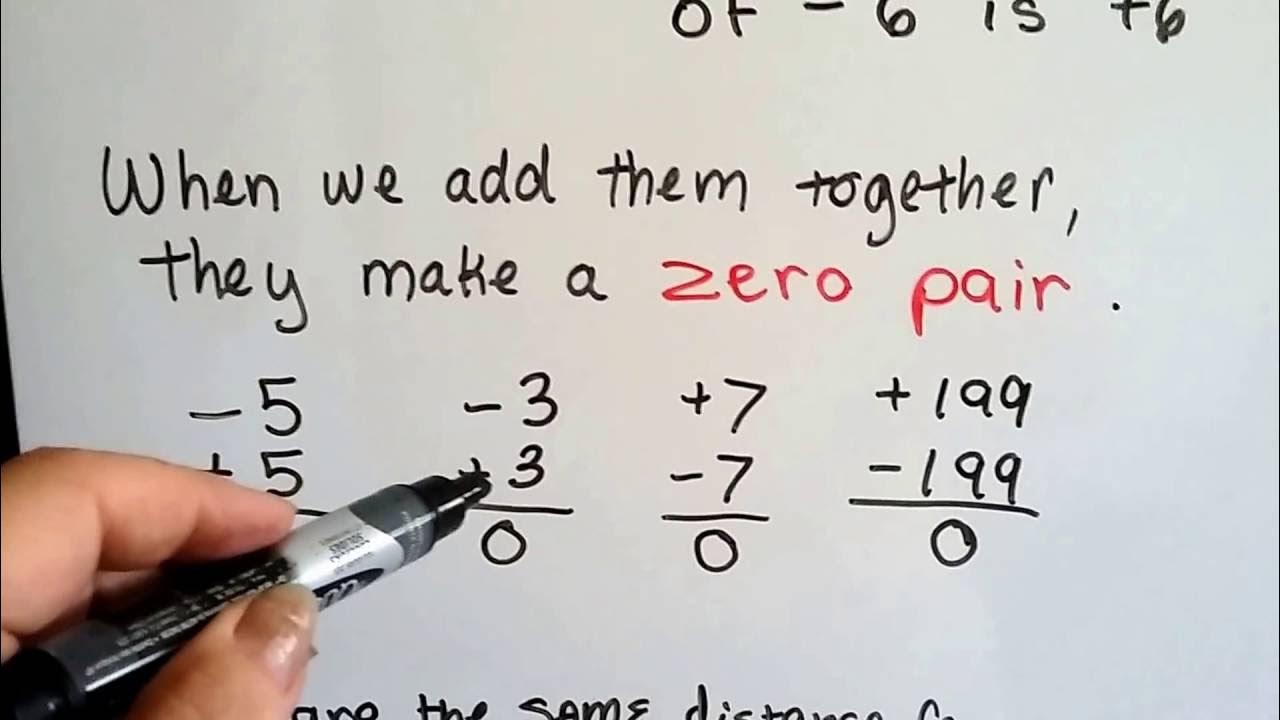 of - 6 is +6
When we add them together,
they make a zero pair.
- 5 - 3 + 7 + 199
+ 5 + 3 - 7 - 199
0 0 0
are the same distance